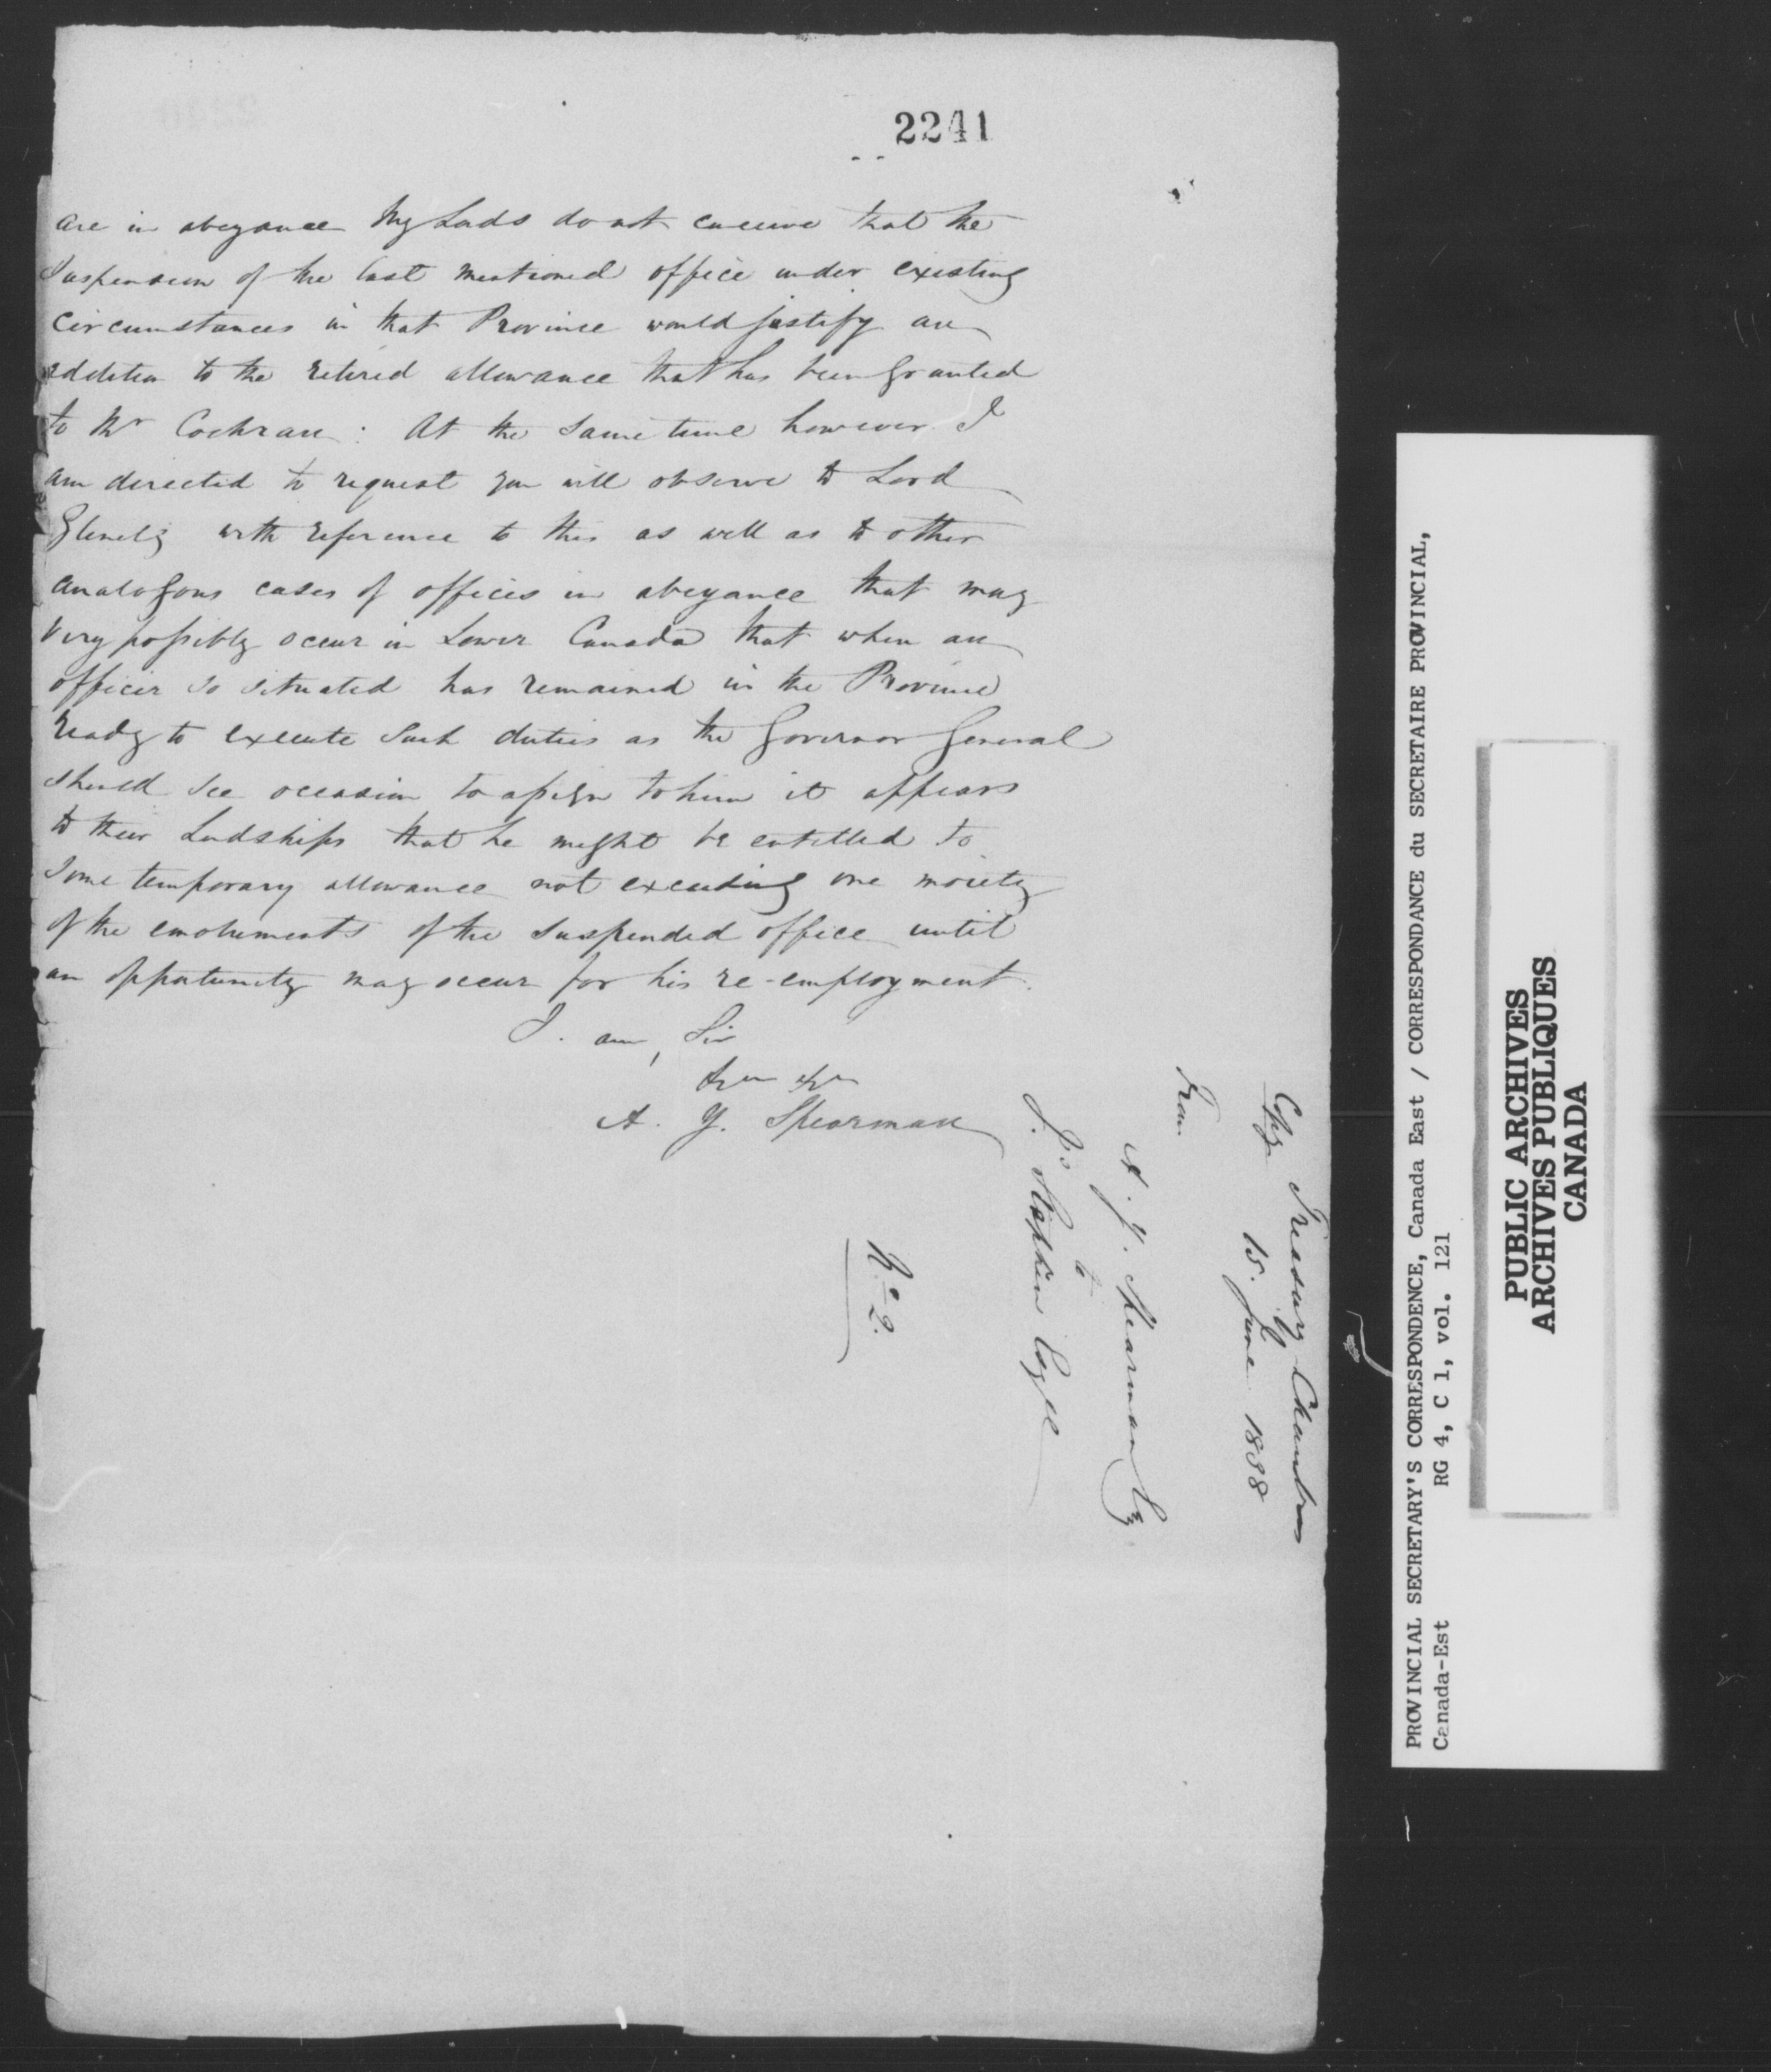 2241
are in abeyance My Lords do not conceive that the
Suspension of the last mentioned office under existing
circumstances in that Province would justify an
addition to the retired allowance that has been granted
to Mr Cochran : At the same time however I
am directed to request you will observe to Lord
Glenelg with reference to this as well as to other
analogous cases of offices in abeyance that may
very possibly occur in Lower Canada that when an
officer so situated has remained in the Province
ready to execute such duties as the Governor General
should see occasion to assign to him it appears
to their Lordships that he might be entitled to
some temporary allowance not exceeding one moiety
of the emoluments of the suspended office until
an opportunity may occur for his re-employment.
I. am, Sir
A. Y. Spearman
Copy Treasury Chambers
15. June 1838
From
A. Y. Spearman Esq
to
Js Stephen Esqre
No 2.
PROVINCIAL SECRETARY'S CORRESPONDENCE, Canada East / CORRESPONDANCE du SECRETAIRE PROVINCIAL,
Canada-Est RG 4, C 1, vol. 121
PUBLIC ARCHIVES
ARCHIVES PUBLIQUES
CANADA